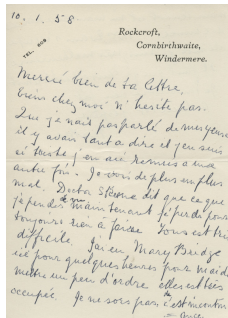 10.1.58
TEL. 608
Rockcroft,
Cornbirthwaite,
Windermere.
Merci bien de ta lettre.
Viens chez moi n'hesite pas.
Que je n'ait pas parlé de mes yeux
il y avait tant a dire et j'en suis
si triste j'en ai remis a une
autre foi. Je vois de plus en plus
mal. Doctor dit que ce que
j'ai perdu maintenant j'ai perdu pour
toujours rien a faire. Tous est très
difficile. J'ai eu Mary Budge
ici pour quelques heures pour m'aider
mettre un peu d'ordre elle est très
occupée. Je ne sors pas c'est